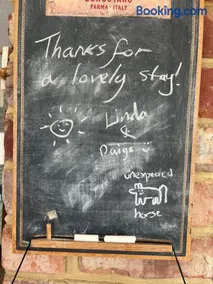 Booking.com
PARMA - ITALY
Thanks for
a lovely stay!
Linda
&
Paige
unexpected
horse